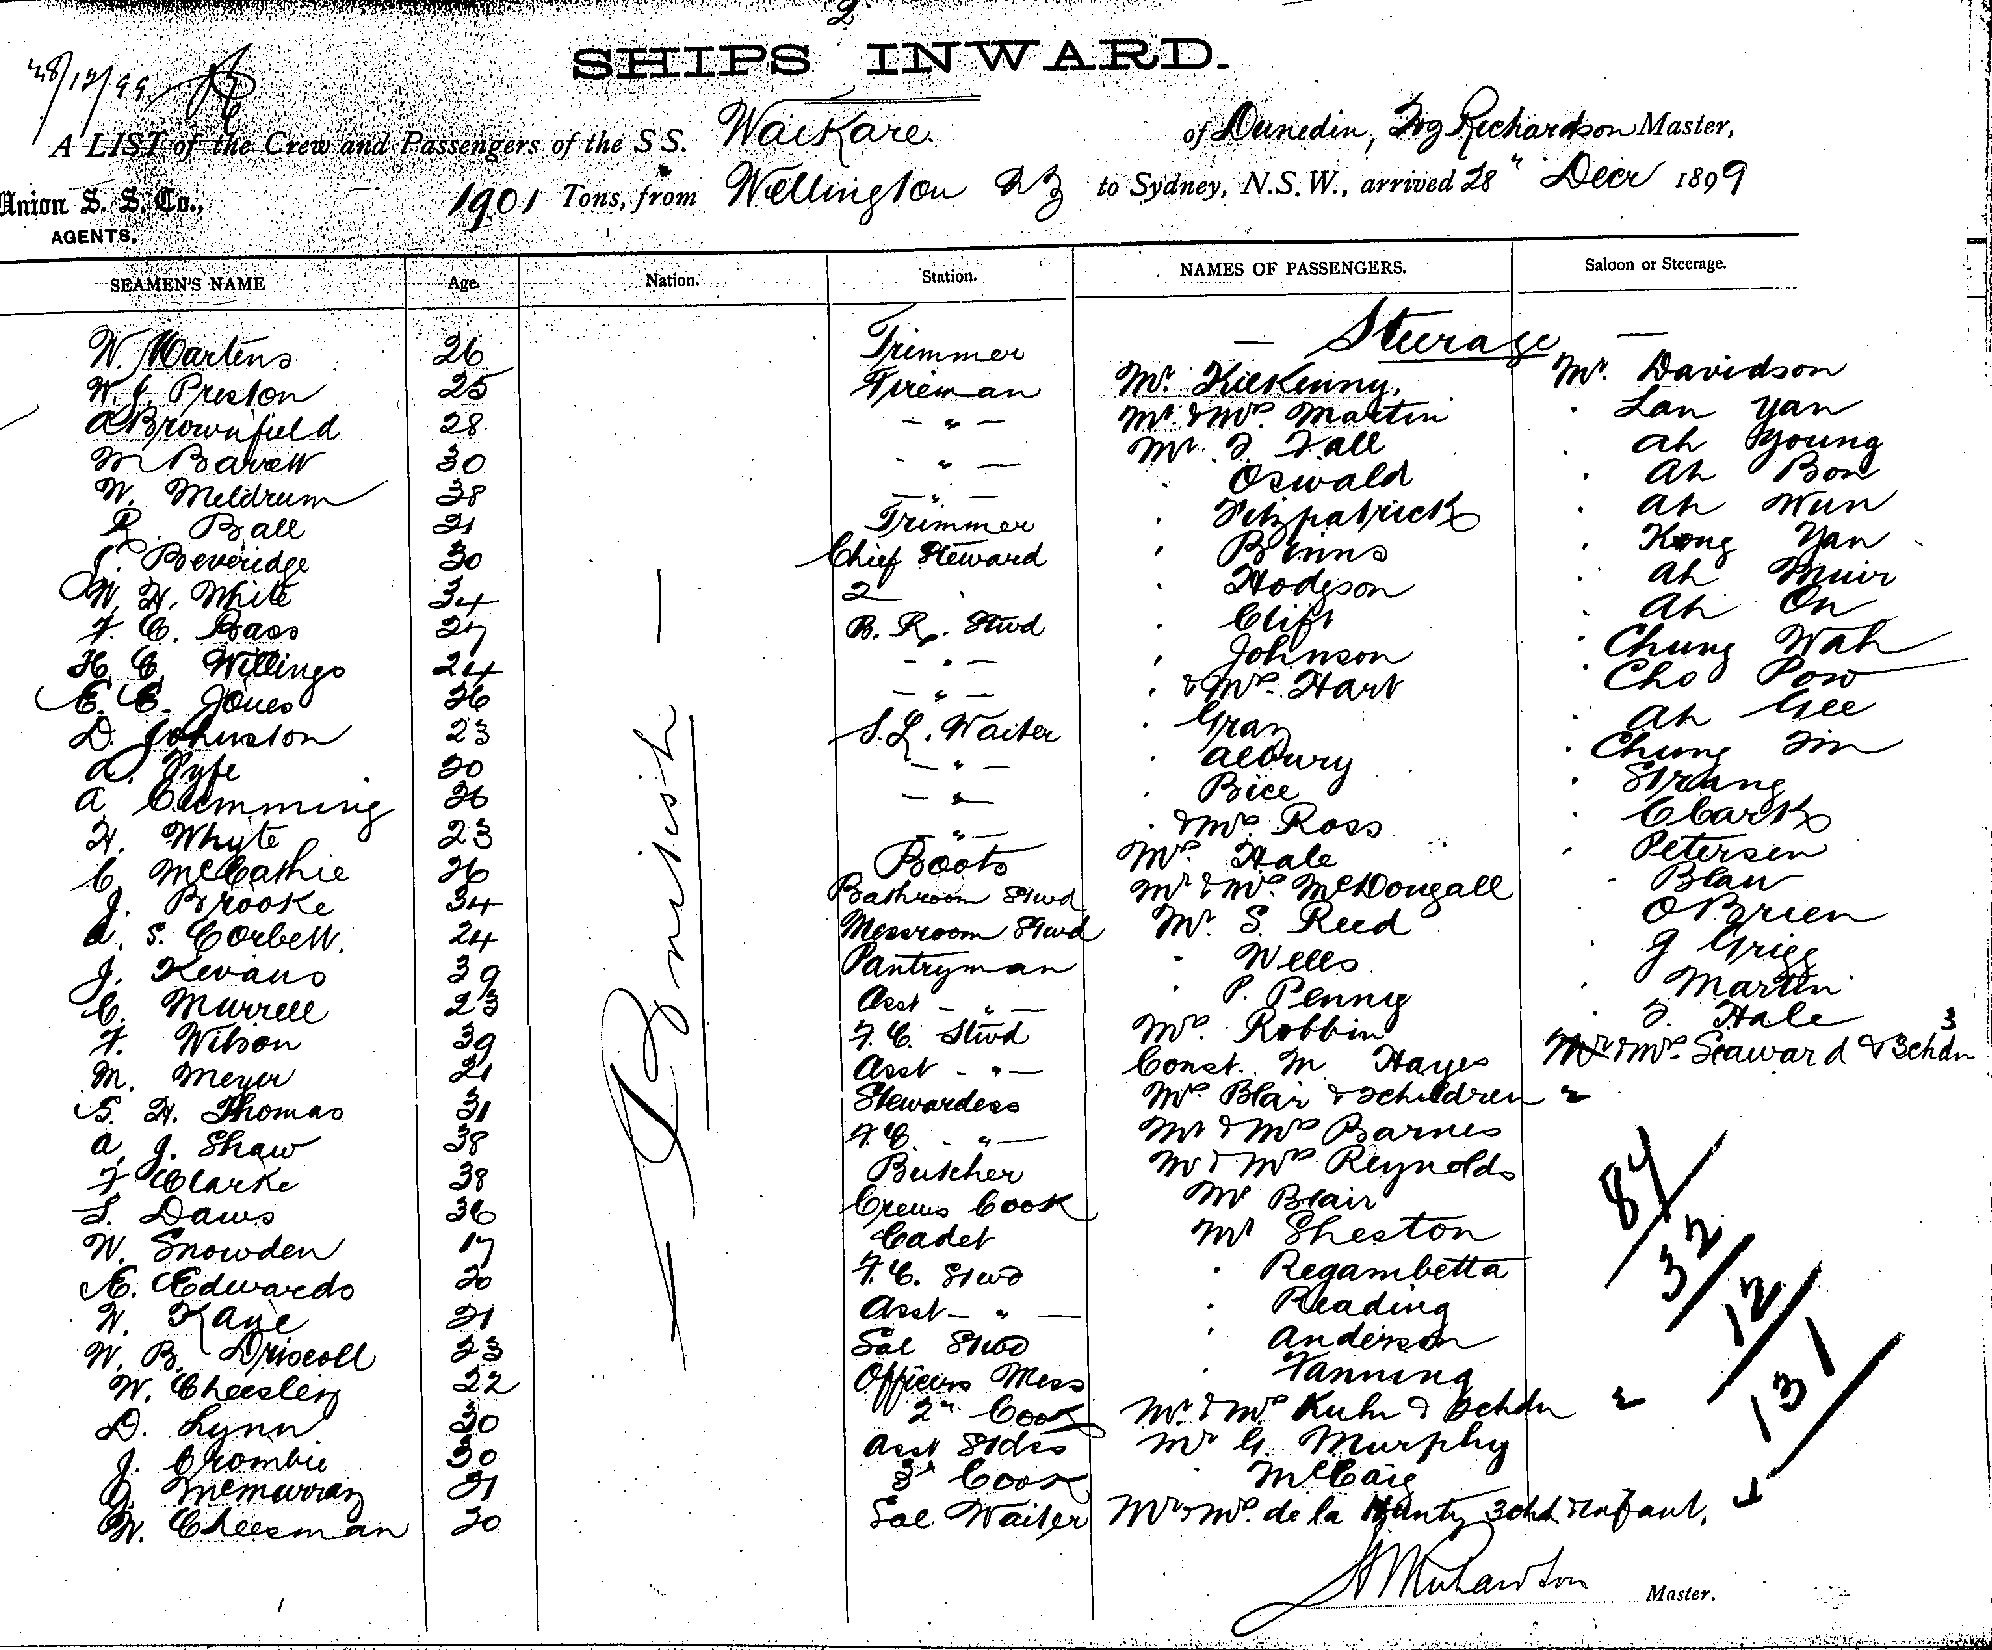 2
SHIPS INWARD.
28/12/99
A LIST of the Crew and Passengers of the SS. Waikare of Dunedin, Richardson Master,
Union S. S. Co., AGENTS. 1901 Tons, from Wellington NZ to Sydney, N.S.W., arrived 28" Decr 1899
SEAMEN'S NAME Age. Nation. Station. NAMES OF PASSENGERS. Saloon or Steerage.
— Steerage —
— British —
W. Martens 26 Trimmer Mr. Kilkenny. Mr. Davidson
W. J. Preston 25 Fireman Mr & Mrs. Martin . Lan Yan
A Brownfield 28 — " — Mr. F. Fall Ah Young
M Barett 30 - " — . Oswald . Ah Bon
W. Meldrum 38 — " — . Fitzpatrick . Ah Wun
R. Ball 21 Trimmer . Binns . Kong Yan
J. Beveridge 30 Chief Steward . Hodgson . Ah Muir
W. H. White 34 2 " . Clift . Ah On
F. C. Bass 27 B. R. Stwd . Johnson . Chung Wah
H. C. Willings 24 — " — . & Mrs. Hart . Cho Pow
E. C. Jones 26 — " — . Gray . Ah Gee
D. Johnston 23 S. L. Waiter . Albury . Chung Tim
A. Fyfe 20 — " — . Bice . Strang
A. Cumming 26 — " — . & Mrs. Ross . Clark
H. Whyte 23 — " — Mrs. Hale . Petersen
C. McCathie 26 Boots Mr & Mrs. McDougall . Blau
J. Brooke 34 Bathroom Stwd Mr. S. Reed . OBrien
A. S. Corbett. 24 Messroom Stwd . Wells . J Grigg
J. Kevans 39 Pantryman . P. Penny . Martin
C. Murrell 23 Asst - " — Mrs. Robbin . F. Hale
F. Wilson 39 F. C. Stwd Const. M. Hayes Mr & Mrs. Seaward & 3chdn 3
M. Meyer 21 Asst - " — Mrs Blair & 2children 2
S. H. Thomas 31 Stewardess Mr & Mrs Barnes
A. J. Shaw 38 F. C. - " — Mr & Mrs Reynolds
F Clarke 38 Butcher Mr Blair
S. Daws 36 Crews Cook Mr Sheston
W. Snowden 17 Cadet . Regambetta
E. Edwards 20 F. C. Stwd . Reading
W. Kaye 21 Asst — " — . Anderson
W. B. Driscoll 23 Sal Stwd . Fanning
W. Cheesley 22 Officers Mess Mr. & Mrs Kuhn & 2chdn 2
D. Lynn 30 2" Cook Mr G. Murphy
J. Crombie 30 Asst Stdss McCaig
J. McMurray 21 3d Cook Mr & Mrs. de la Hunty 3chd & Infant.
W. Cheesman 20 Sal Waiter
84/
32/
12/
131/
Richardson Master.